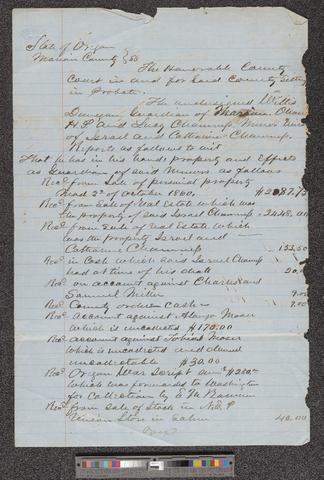 State of Oregon
Marion County } SS
The Honorable County
Court in and for Said County Sitting
in Probate.
The undersigned Willis
Dunigan Guardian of Oliver
H. P. and Lucy Champ Minor heirs
of Israel and Catharine Champ.
Reports as follows to wit
That he has in his hands property and Effects
as Guardian of said Minors as follows
Recd from Sale of personal property
October 1860
Recd from Sale of Real Estate which was
the property of said Israel Champ 2448.00
Recd from Sale of Real Estate which
was the property Israel and
Catharine Champ 133.50
Recd in Cash which said Israel Champ
had at time of his death
Recd on account against Charles and
Samuel Miller 9.00
Recd County order Cash 9.00
Recd account against Moser
Which is uncollected $170.00
Recd account against Tobias Moser
Which is uncollected and
uncollectable $30.00
Recd Oregon War Script
which was forwarded to Washington
for Collection by
Recd from Sale of Stock in
Union Store in Salem 40.00